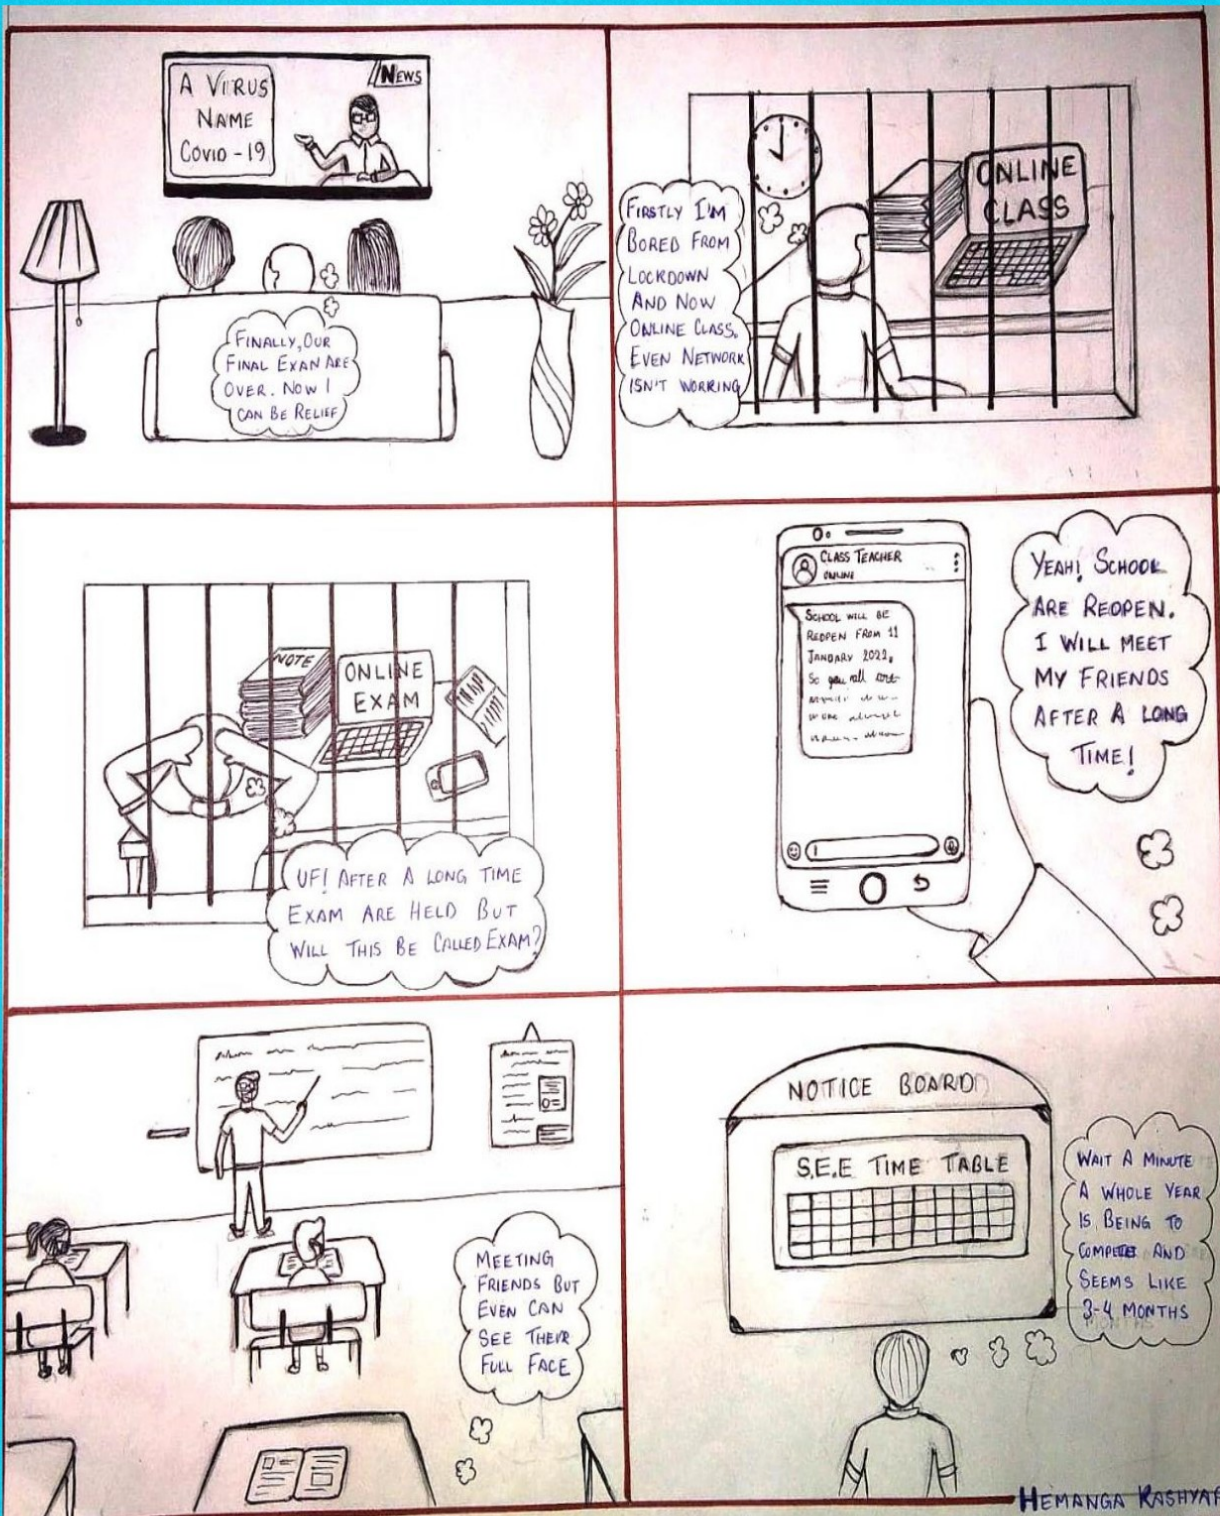 A VIRUS
NAME
COVID-19
NEWS
FINALLY, OUR
FINAL EXAN ARE
OVER. NOW I
CAN BE RELIEF
FIRSTLY I'M
BORED FROM
LOCKDOWN
AND NOW
ONLINE CLASS.
EVEN NETWORK
ISN'T WORRING
ONLINE
CLASS
NOTE
ONLINE
EXAM
UF! AFTER A LONG TIME
EXAM ARE HELD BUT
WILL THIS BE CALLED EXAM?
CLASS TEACHER
ONLINE
SCHOOL WILL BE
REOPEN FROM 11
JANUARY 2022,
So you all
YEAH! SCHOOL
ARE REOPEN.
I WILL MEET
MY FRIENDS
AFTER A LONG
TIME!
MEETING
FRIENDS BUT
EVEN CAN
SEE THEIR
FULL FACE
NOTICE BOARD
S.E.E TIME TABLE
WAIT A MINUTE
A WHOLE YEAR
IS BEING TO
COMPETE AND
SEEMS LIKE
3-4 MONTHS
HEMANGA KASHYAP